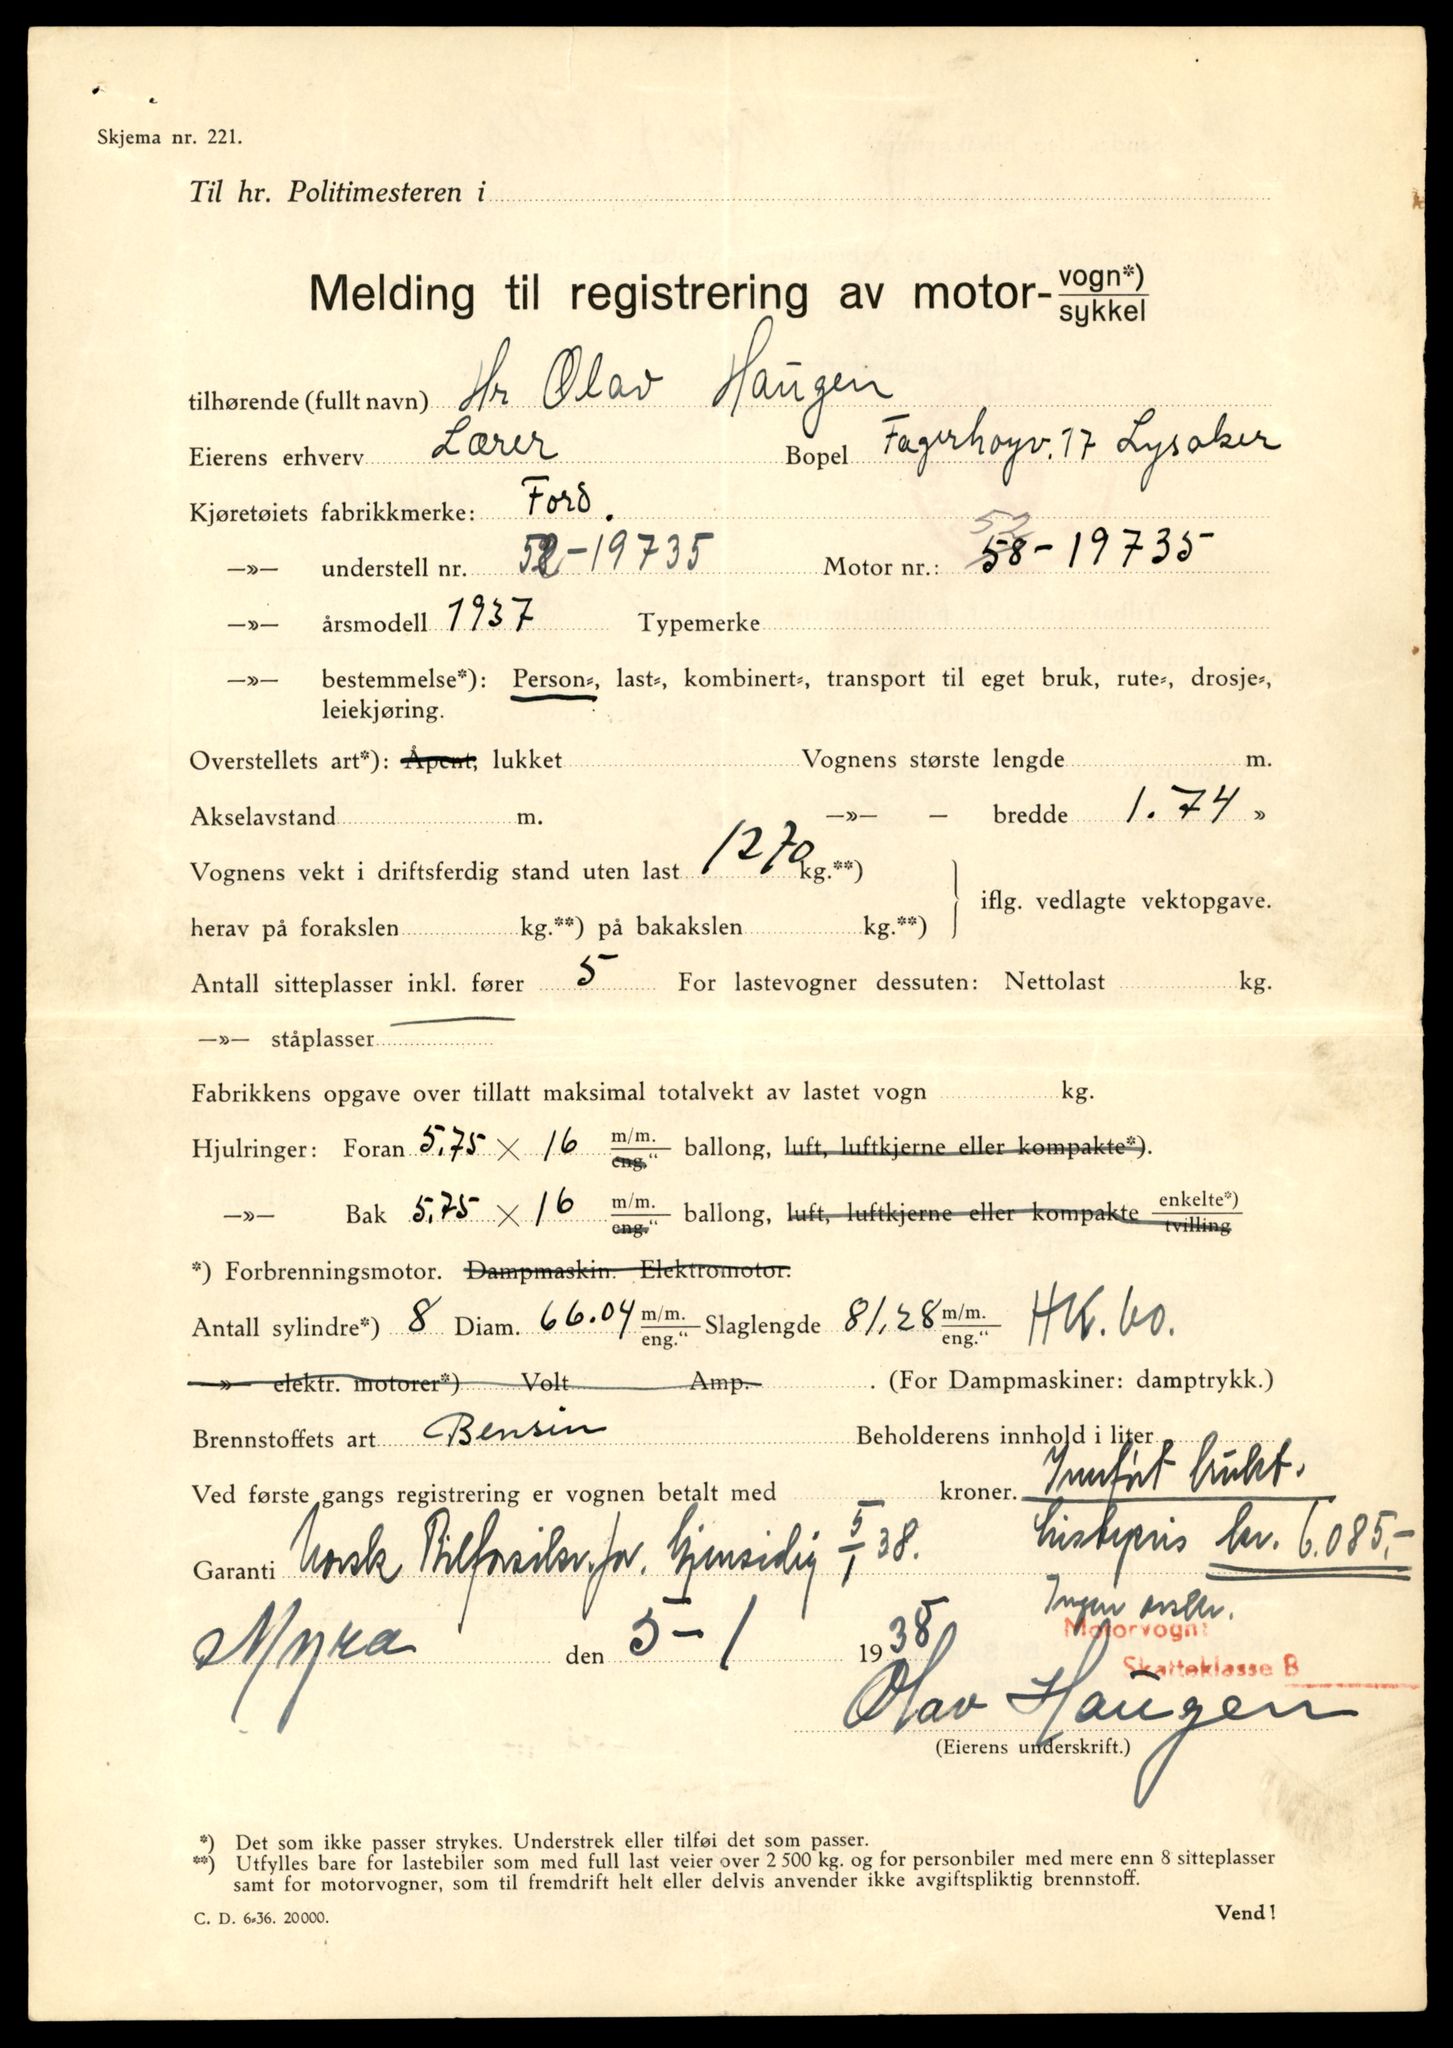 Skjema nr. 221.
Til hr. Politimesteren i
Melding til registrering av motor- vogn*) / sykkel
tilhørende (fullt navn) Hr Olav Haugen
Eierens erhverv Lærer Bopel Fagerhøyv. 17 Lysaker
Kjøretøiets fabrikkmerke: Ford.
52
—»— understell nr. 52-19735 Motor nr.: 58-19735
—»— årsmodell 1937 Typemerke
—»— bestemmelse*): Person-, last-, kombinert-, transport til eget bruk, rute-, drosje-,
leiekjøring.
Overstellets art*): Åpent, lukket Vognens største lengde m.
Akselavstand m. —»— — bredde 1.74 »
Vognens vekt i driftsferdig stand uten last 1270 kg.**)
iflg. vedlagte vektopgave.
herav på forakslen kg.**) på bakakslen kg.**)
Antall sitteplasser inkl. fører 5 For lastevogner dessuten: Nettolast kg.
—»— ståplasser
Fabrikkens opgave over tillatt maksimal totalvekt av lastet vogn kg.
Hjulringer: Foran 5.75 × 16 m/m. / eng.“ ballong, luft, luftkjerne eller kompakte*).
—»— Bak 5.75 × 16 m/m. / eng.“ ballong, luft, luftkjerne eller kompakte enkelte*) / tvilling
*) Forbrenningsmotor. Dampmaskin. Elektromotor.
Antall sylindre*) 8 Diam. 66.04 m/m. / eng.“ Slaglengde 81,28 m/m. / eng.“ HK. 60.
—»— elektr. motorer*) Volt Amp. . (For Dampmaskiner: damptrykk.)
Brennstoffets art Bensin Beholderens innhold i liter
Ved første gangs registrering er vognen betalt med kroner. Innført brukt.
Garanti Norsk Bilforsikr.for. Gjensidig 5/1 38. Listepris kr. 6.085,-
Ingen
Myra den 5-1 1938
Motorvogn:
Skatteklasse B
Olav Haugen
(Eierens underskrift.)
*) Det som ikke passer strykes. Understrek eller tilføi det som passer.
**) Utfylles bare for lastebiler som med full last veier over 2 500 kg. og for personbiler med mere enn 8 sitteplasser
samt for motorvogner, som til fremdrift helt eller delvis anvender ikke avgiftspliktig brennstoff.
C. D. 6-36. 20000.
Vend!